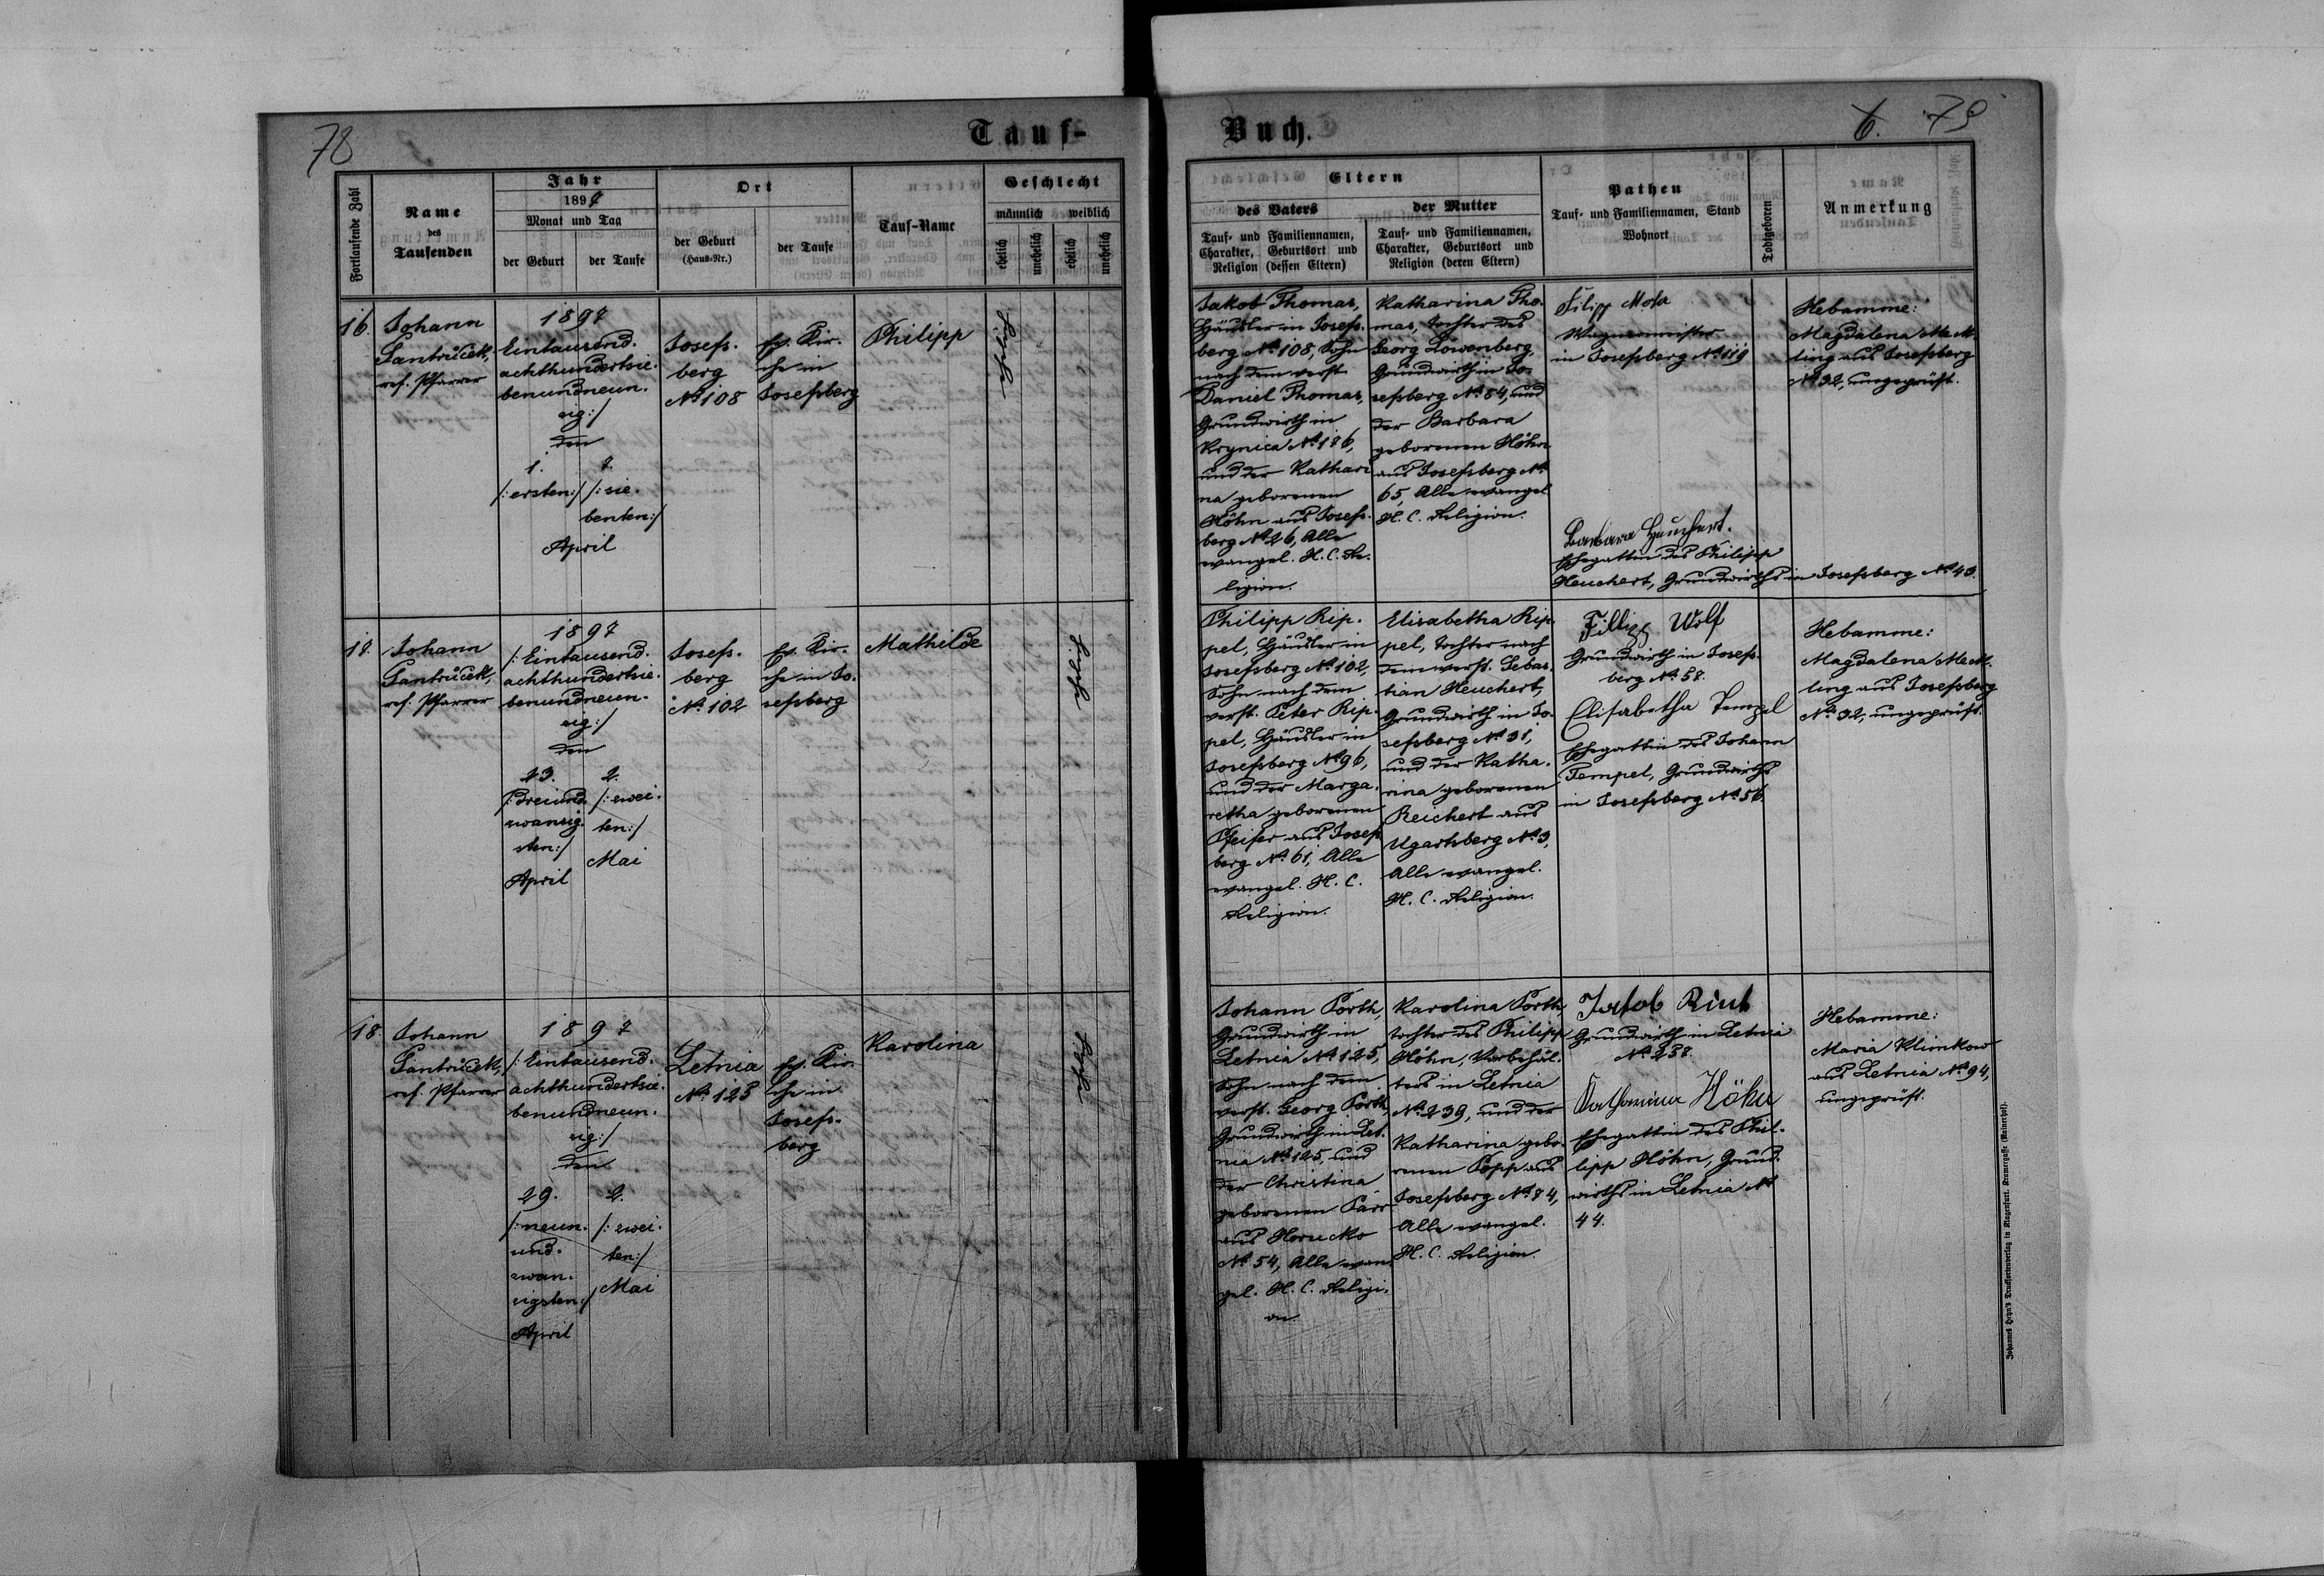 78
Tauf-
Fortlaufende Zahl
Name
des
Taufenden
Jahr
1897
Monat und Tag
der Geburt
der Taufe
Ort
der Geburt
(Haus-Nr.)
der Taufe
Tauf-Name
Geschlecht
männlich
weiblich
ehelich
unehelich
ehelich
unehelich
16.
Johann
Jantriček,
ref. Pfarrer
1897
Eintausend-
achthundertsie-
benundneun-
zig:/
den
1.
/:ersten:/
7.
/:sie-
benten:/
April
Josefs-
berg
No 108
ev. Kir-
che in
Josefsberg
Philipp
ehelich
17.
Johann
Jantriček,
ref. Pfarrer
1897
/:Eintausend-
achthundertsie-
benundneun-
zig:/
den
23.
/:dreiund-
zwanzig-
sten:/
April
2.
/:zwei-
ten:/
Mai
Josefs-
berg
No 102
ev. Kir-
che in Jo-
sefsberg
Mathilde
ehelich
18.
Johann
Jantriček,
ref. Pfarrer
1897
/:Eintausend-
achthundertsie-
benundneun-
zig:/
den
29.
/:neun-
und-
zwan-
zigsten:/
April
2.
/:zwei-
ten:/
Mai
Letnia
No 125
ev. Kir-
che in
Josefs-
berg
Karolina
ehelich
Buch.
6. 79
Eltern
des Vaters
Tauf- und Familiennamen,
Charakter, Geburtsort und
Religion (dessen Eltern)
der Mutter
Tauf- und Familiennamen,
Charakter, Geburtsort und
Religion (deren Eltern)
Pathen
Tauf- und Familiennamen, Stand
Wohnort
Todtgeboren
Anmerkung
Jakob Thomas,
Häusler in Josefs-
berg No 108, Sohn
nach dem verst.
Daniel Thomas,
Grundwirth in
Krynica No 186,
und der Kathari-
na geborenen
Höhn aus Josefs-
berg No 26, Alle
evangel. H. C. Re-
ligion.
Katharina Tho-
mas, Tochter des
Georg Löwenberg,
Grundwirth in Jo-
sefsberg No 84, und
der Barbara
geborenen Höhn
aus Josefsberg No
65, Alle evangel.
H. C. Religion.
Filipp Mosa
Wagnermeister
in Josefsberg No 119
Barbara Heuchert.
Ehegattin des Philipp
Heuchert, Grundwirths in Josefsberg No 43.
Hebamme:
Magdalena
aus Josefsberg
No 32, ungeprüft.
Philipp Rip-
pel, Häusler in
Josefsberg No 102,
Sohn nach dem
verst. Peter Rip-
pel, Häusler in
Josefsberg No 96,
und der Marga-
retha geborenen
Pfeifer aus Josefs-
berg No 61, Alle
evangel. H. C.
Religion.
Elisabetha Rip-
pel, Tochter nach
dem verst. Sebas-
tian Heuchert,
Grundwirth in Jo-
sefsberg No 31,
und der Katha-
rina geborenen
Reichert aus
Ugartsberg No 3,
Alle evangel.
H. C. Religion.
Fillipp Wolf
Grundwirth in Josefs-
berg No 58.
Elisabetha Tempel
Ehegattin des Johann
Tempel, Grundwirths
in Josefsberg No 56.
Hebamme:
Magdalena
aus Josefsberg
No 32, ungeprüft.
Johann Porth,
Grundwirth in
Letnia No 125,
Sohn nach dem
verst. Georg Porth,
Grundwirth in Let-
nia No 125, und
der Christina
geborenen Parr
aus Horucko
No 54, Alle evan-
gel. H. C. Religi-
on.
Karolina Porth,
Tochter des Philipp
Höhn, Vorbehäl-
ters in Letnia
No 239, und der
Katharina gebo-
renen Popp aus
Josefsberg No 74,
Alle evangel.
H. C. Religion.
Jakob
Grundwirth in Letnia
No 237.
Katharina Höhn
Ehegattin des Phi-
lipp Höhn, Grund-
wirths in Letnia No
44.
Hebamme:
Maria Klimkow
aus Letnia No 94,
ungeprüft.
Johannes Heyn's Drucksortenverlag in Klagenfurt. Kramergasse (Rainerhof).